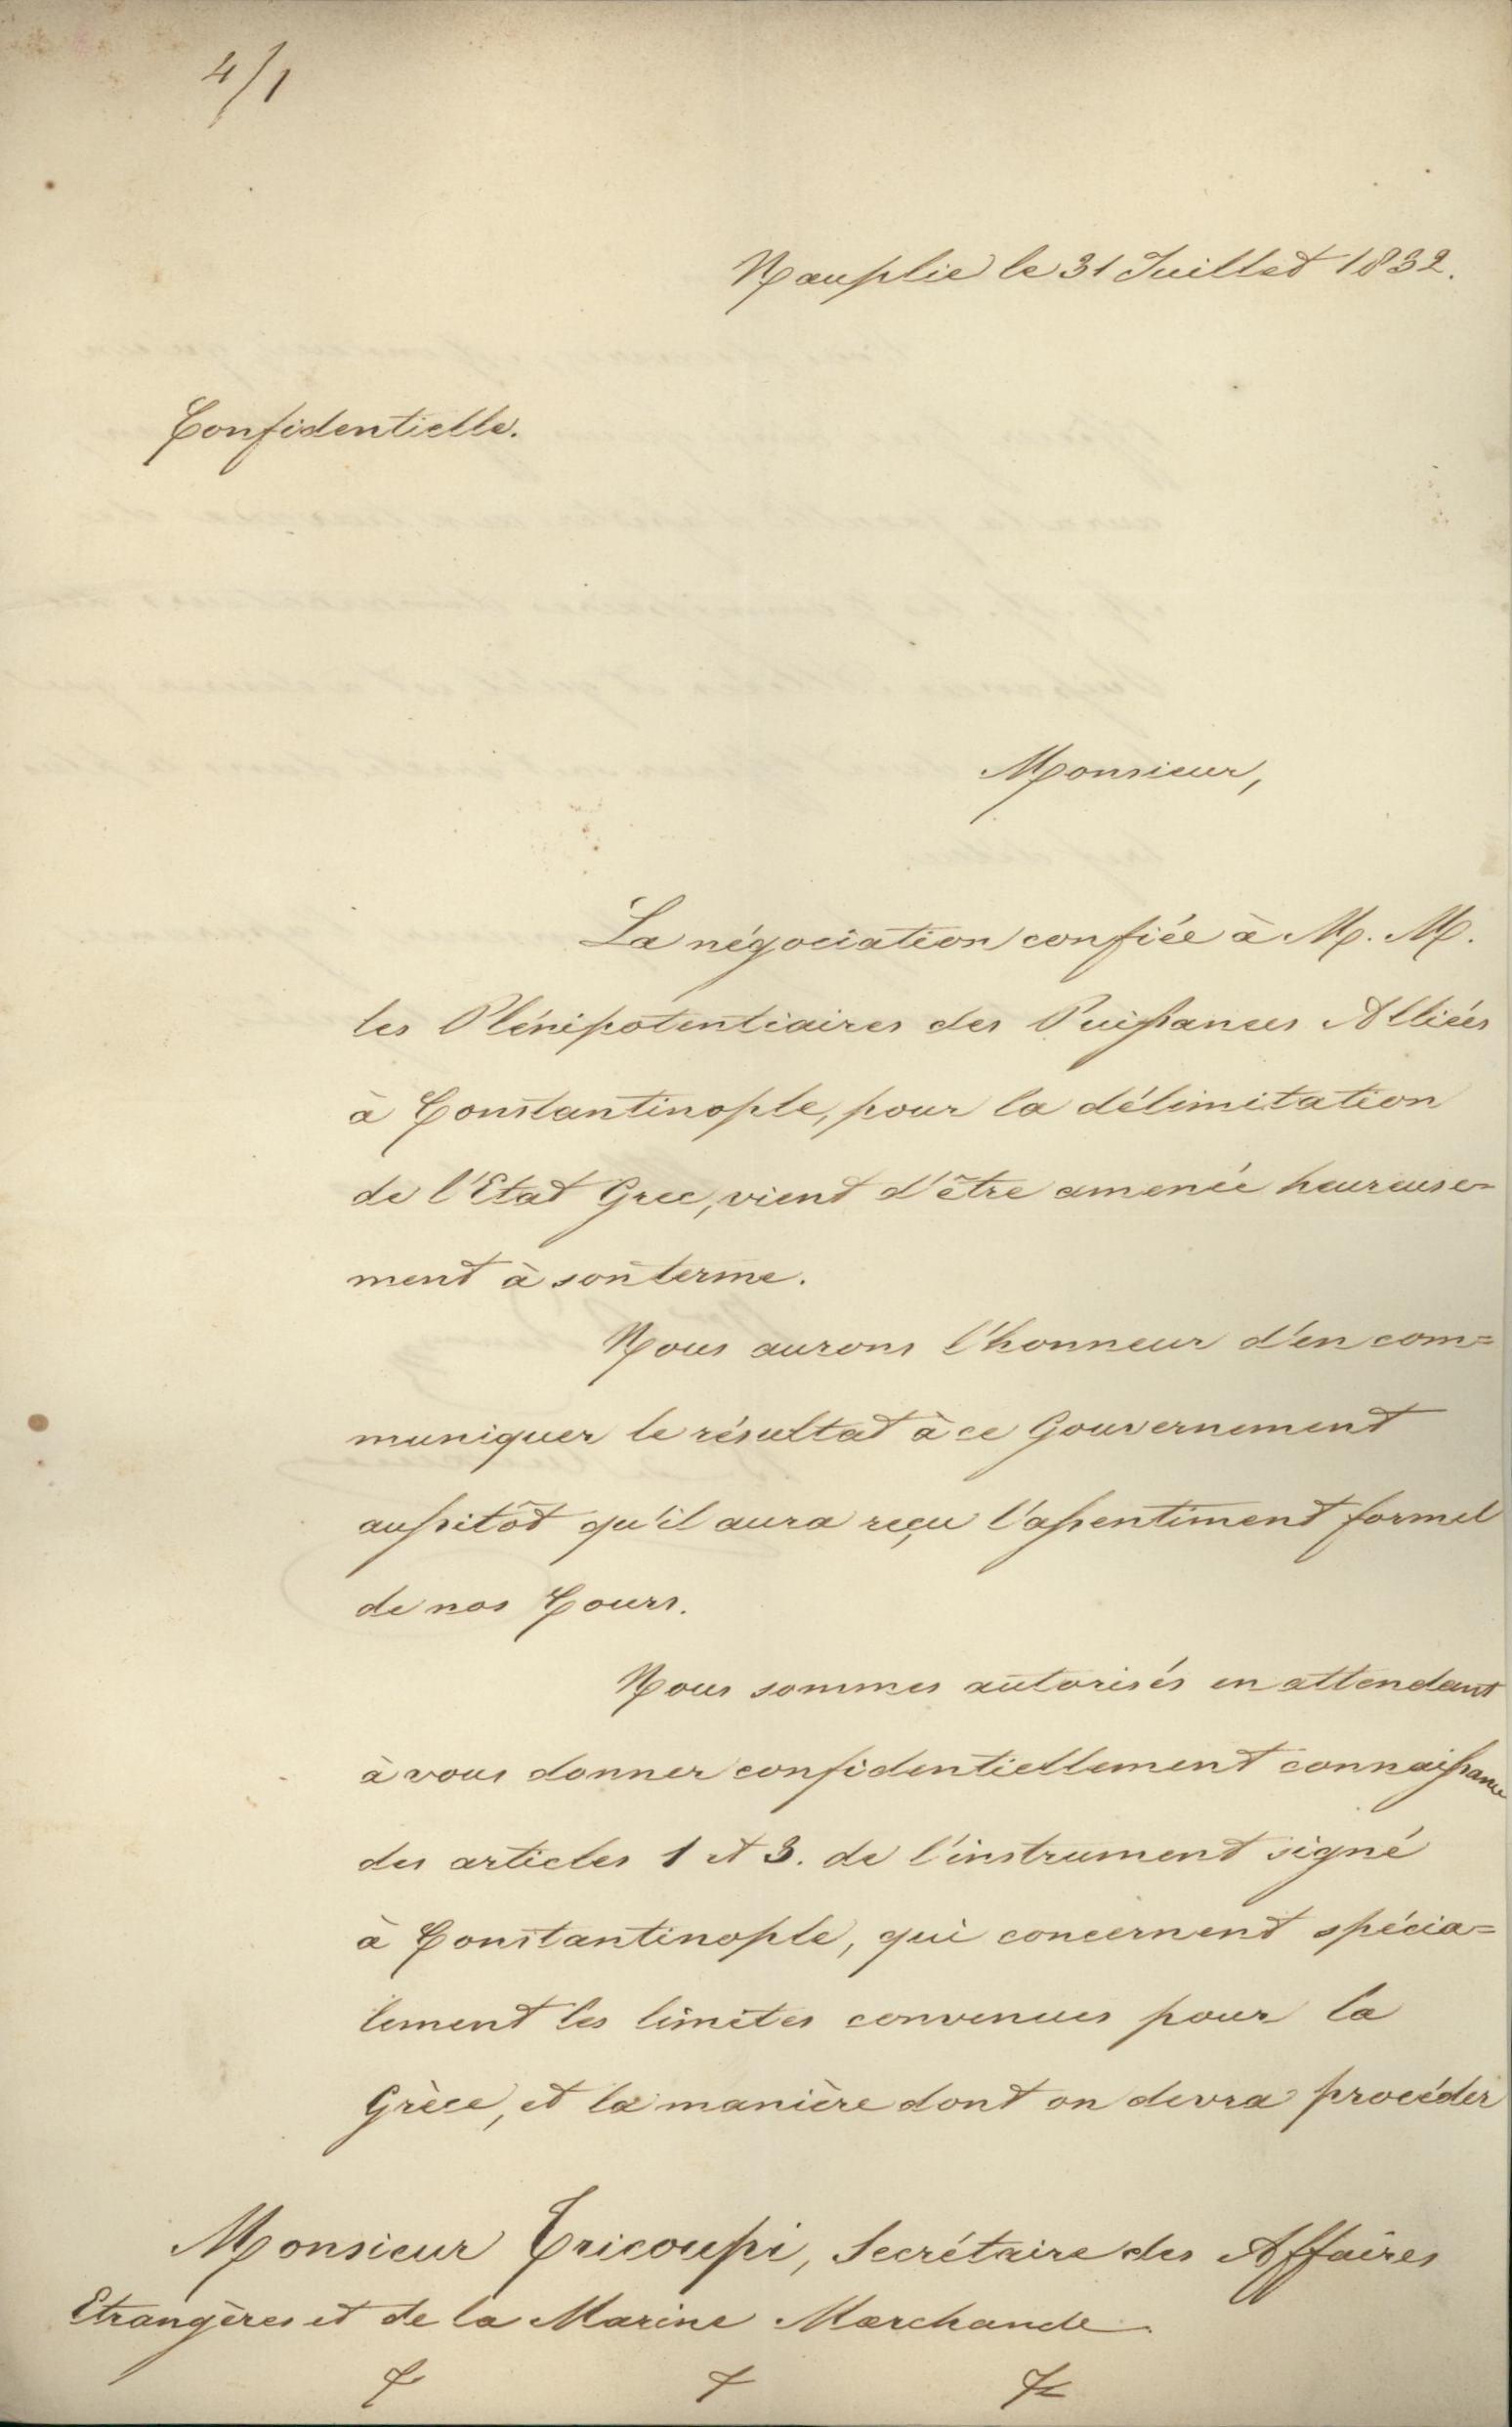 4/1
Nauplie le 31 Juillet 1832.
Confidentielle.
Monsieur,
La négociation confiée à M. M.
les Plénipotentiaires des Puissances Alliées
à Constantinople, pour la délimitation
de l'Etat Grec, vient d'être amenée heureuse=
ment à son terme.
Nous aurons l'honneur d'en com=
muniquer le résultat à ce Gouvernement
aussitôt qu'il aura reçu l'assentiment formel
de nos Cours.
Nous sommes autorisés en attendant
à vous donner confidentiellement connaissance
des articles 1 et 3. de l'instrument signé
à Constantinople, qui concernent spécia=
lement les limites convenues pour la
Grèce, et la manière dont on devra procéder
Monsieur Tricoupi, Secrétaire des Affaires
Etrangères et de la Marine Marchande.